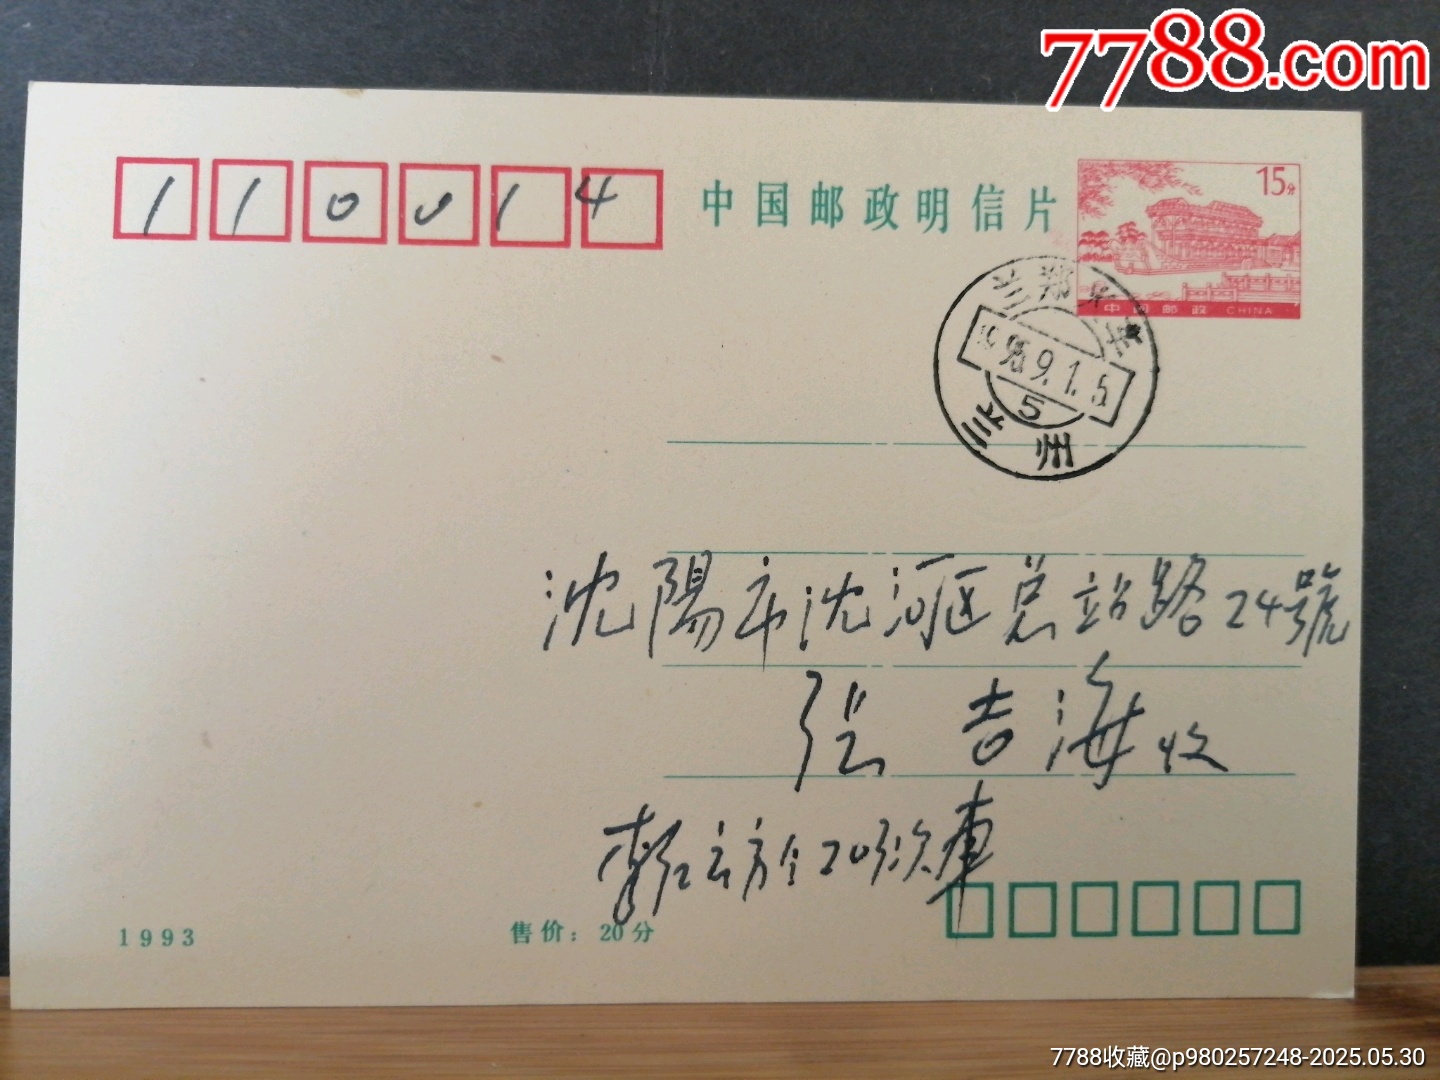 7788.com
110014
中国邮政明信片
15分
中国邮政 CHINA
兰郑
1995.9.1.5
5
兰州
沈陽市沈河区总站路24號
張吉海收
20次車
1993
售价：20分
7788收藏@p980257248-2025.05.30